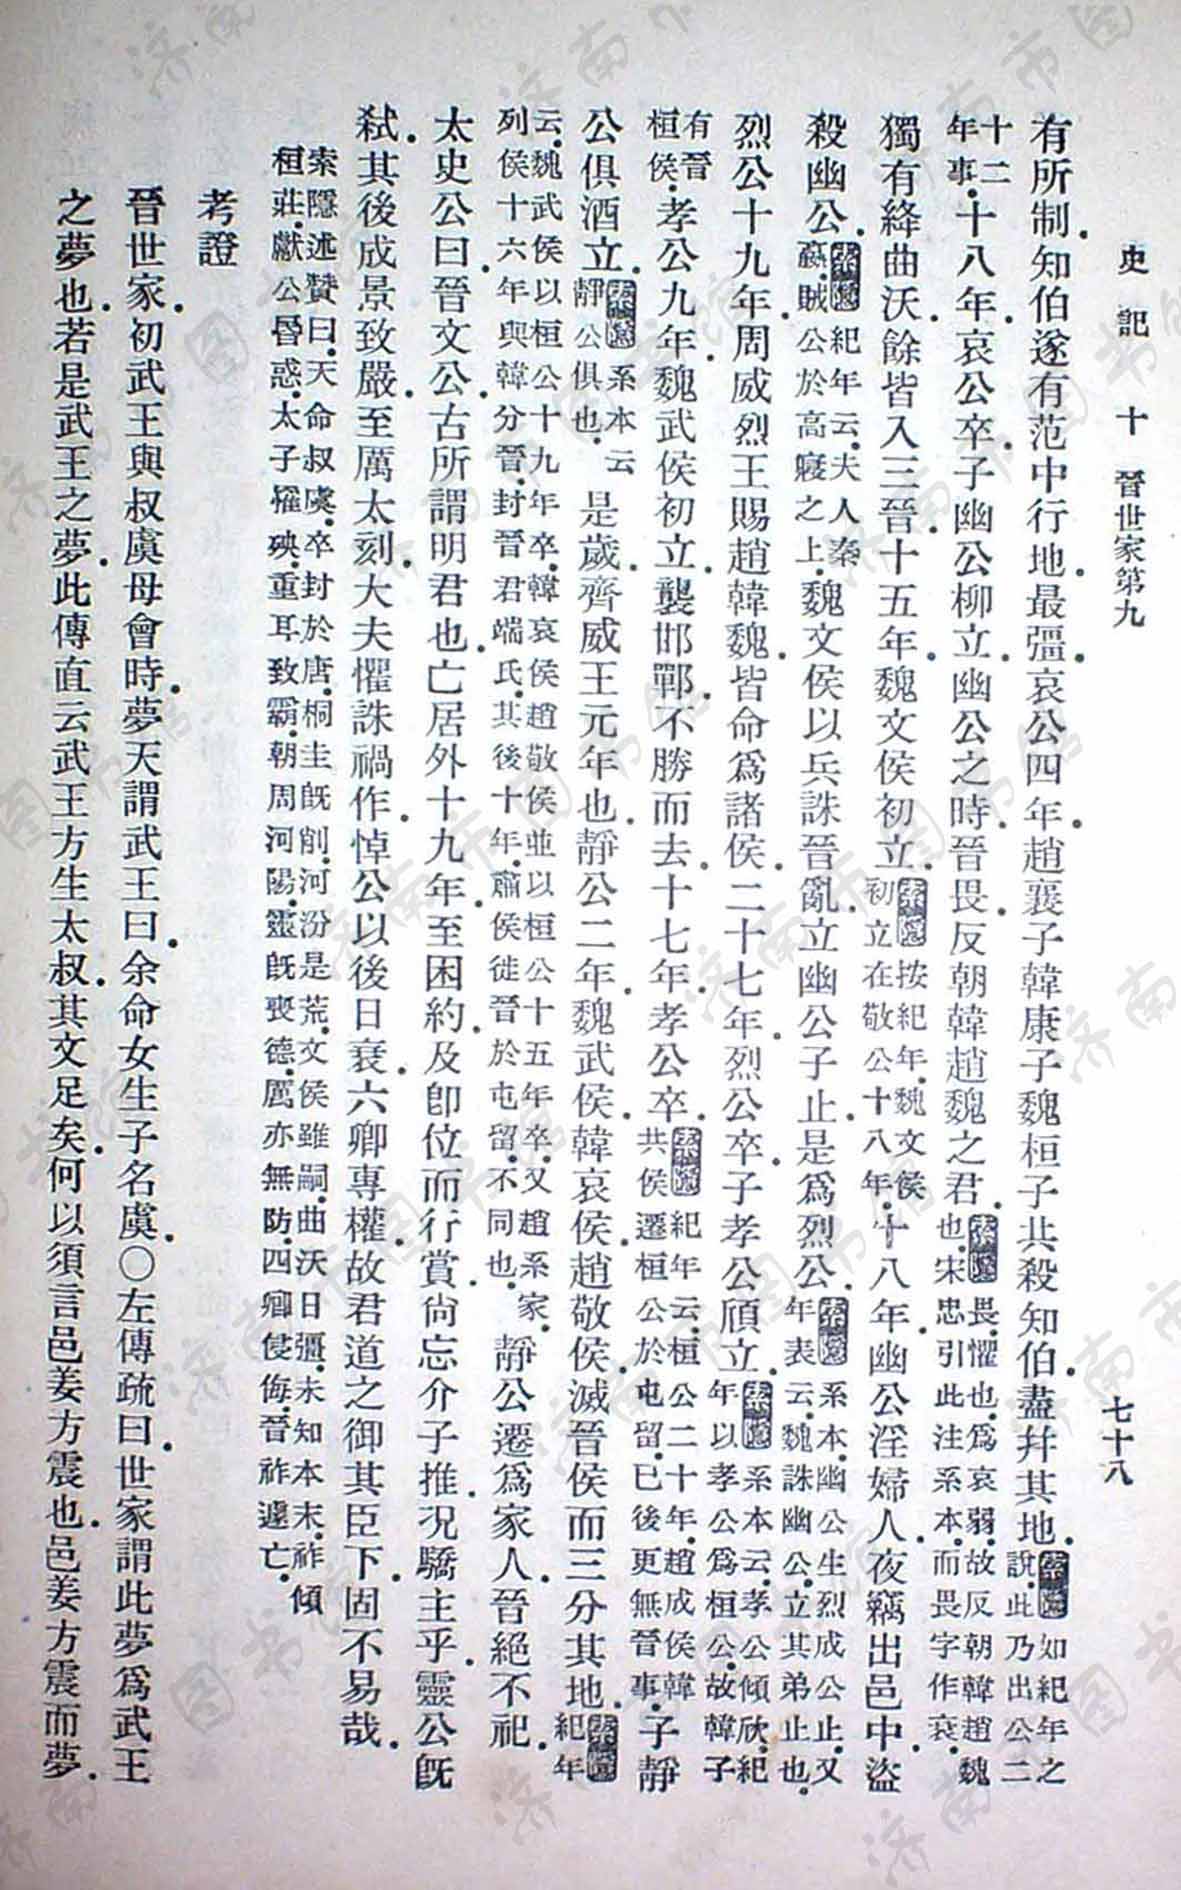 史記 十 晉世家第九 七十八
有所制。知伯遂有范中行地。最彊。哀公四年。趙襄子韓康子魏桓子共殺知伯。盡幷其地。索隱如紀年之說。此乃出公二
十二年事。十八年。哀公卒。子幽公柳立。幽公之時。晉畏。反朝韓趙魏之君。索隱畏。懼也。爲哀弱。故反朝韓趙魏也。宋忠引此注系本。而畏字作衰。
獨有絳曲沃。餘皆入三晉。十五年。魏文侯初立。索隱按紀年。魏文侯初立在敬公十八年。十八年。幽公淫婦人。夜竊出邑中。盜
殺幽公。索隱紀年云。夫人秦嬴。賊公於高寢之上。魏文侯以兵誅晉亂。立幽公子止。是爲烈公。索隱系本。幽公生烈成公止。又年表云。魏誅幽公。立其弟止也。
烈公十九年。周威烈王賜趙韓魏。皆命爲諸侯。二十七年。烈公卒。子孝公頎立。索隱系本云。孝公傾欣。紀年以孝公爲桓公。故韓子
有晉桓侯。孝公九年。魏武侯初立。襲邯鄲。不勝而去。十七年。孝公卒。索隱紀年云。桓公二十年。趙成侯韓共侯遷桓公於屯留。已後更無晉事。子靜
公俱酒立。索隱系本云靜公俱也。是歲。齊威王元年也。靜公二年。魏武侯。韓哀侯。趙敬侯。滅晉侯而三分其地。索隱紀年
云。魏武侯以桓公十九年卒。韓哀侯趙敬侯並以桓公十五年卒。又趙系家。列侯十六年與韓分晉。封晉君端氏。其後十年。肅侯徙晉於屯留。不同也。靜公遷爲家人。晉絕不祀。
太史公曰。晉文公。古所謂明君也。亡居外十九年。至困約。及卽位而行賞。尙忘介子推。况驕主乎。靈公旣
弒。其後成景致嚴。至厲太刻。大夫懼誅。禍作。悼公以後日衰。六卿專權。故君道之御其臣下。固不易哉。
索隱述贊曰。天命叔虞。卒封於唐。桐圭旣削。河汾是荒。文侯雖嗣。曲沃日彊。未知本末。祚傾桓莊。獻公昏惑。太子罹殃。重耳致霸。朝周河陽。靈旣喪德。厲亦無防。四卿侵侮。晉祚遽亡。
考證
晉世家。初武王與叔虞母會時。夢天謂武王曰。余命女生子名虞。○左傳疏曰。世家謂此夢爲武王
之夢也。若是武王之夢。此傳直云武王方生太叔。其文足矣。何以須言邑姜方震也。邑姜方震而夢。